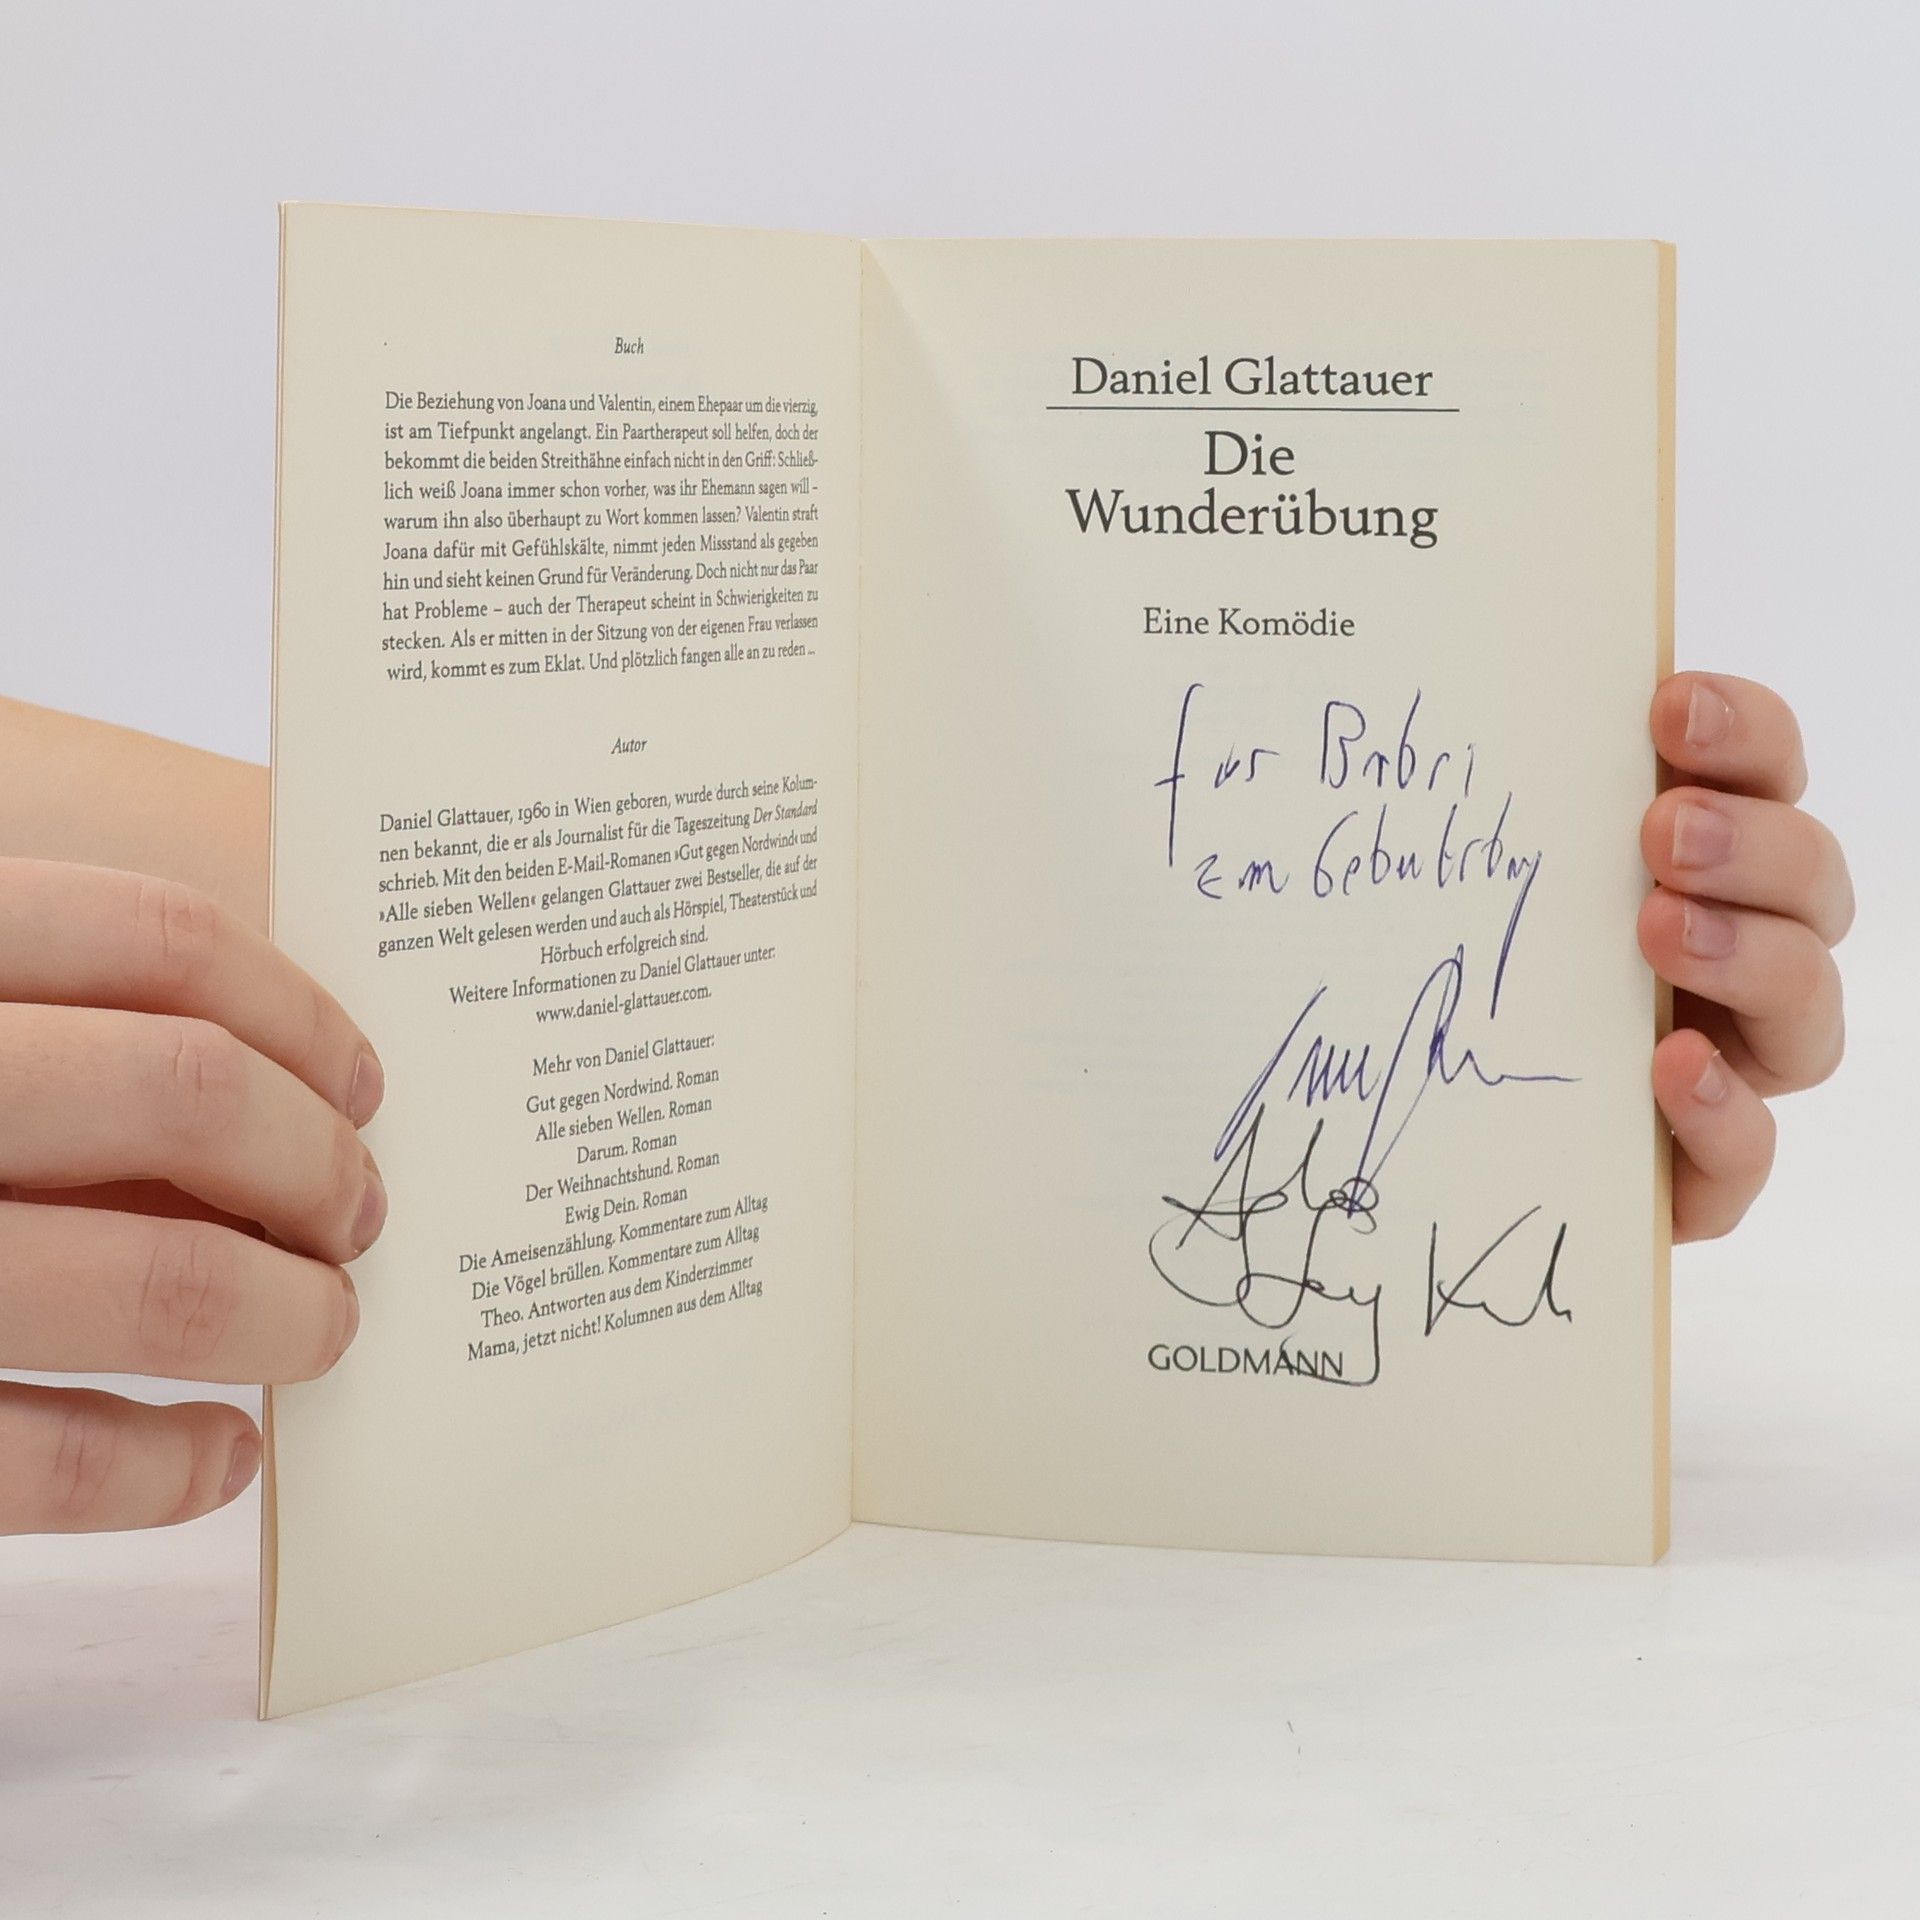 Buch
Die Beziehung von Joana und Valentin, einem Ehepaar um die vierzig,
ist am Tiefpunkt angelangt. Ein Paartherapeut soll helfen, doch der
bekommt die beiden Streithähne einfach nicht in den Griff: Schließ-
lich weiß Joana immer schon vorher, was ihr Ehemann sagen will –
warum ihn also überhaupt zu Wort kommen lassen? Valentin straft
Joana dafür mit Gefühlskälte, nimmt jeden Missstand als gegeben
hin und sieht keinen Grund für Veränderung. Doch nicht nur das Paar
hat Probleme – auch der Therapeut scheint in Schwierigkeiten zu
stecken. Als er mitten in der Sitzung von der eigenen Frau verlassen
wird, kommt es zum Eklat. Und plötzlich fangen alle an zu reden ...
Autor
Daniel Glattauer, 1960 in Wien geboren, wurde durch seine Kolum-
nen bekannt, die er als Journalist für die Tageszeitung Der Standard
schrieb. Mit den beiden E-Mail-Romanen »Gut gegen Nordwind« und
»Alle sieben Wellen« gelangen Glattauer zwei Bestseller, die auf der
ganzen Welt gelesen werden und auch als Hörspiel, Theaterstück und
Hörbuch erfolgreich sind.
Weitere Informationen zu Daniel Glattauer unter:
www.daniel-glattauer.com.
Mehr von Daniel Glattauer:
Gut gegen Nordwind. Roman
Alle sieben Wellen. Roman
Darum. Roman
Der Weihnachtshund. Roman
Ewig Dein. Roman
Die Ameisenzählung. Kommentare zum Alltag
Die Vögel brüllen. Kommentare zum Alltag
Theo. Antworten aus dem Kinderzimmer
Mama, jetzt nicht! Kolumnen aus dem Alltag
Daniel Glattauer
Die
Wunderübung
Eine Komödie
für
zum Geburtstag
GOLDMANN